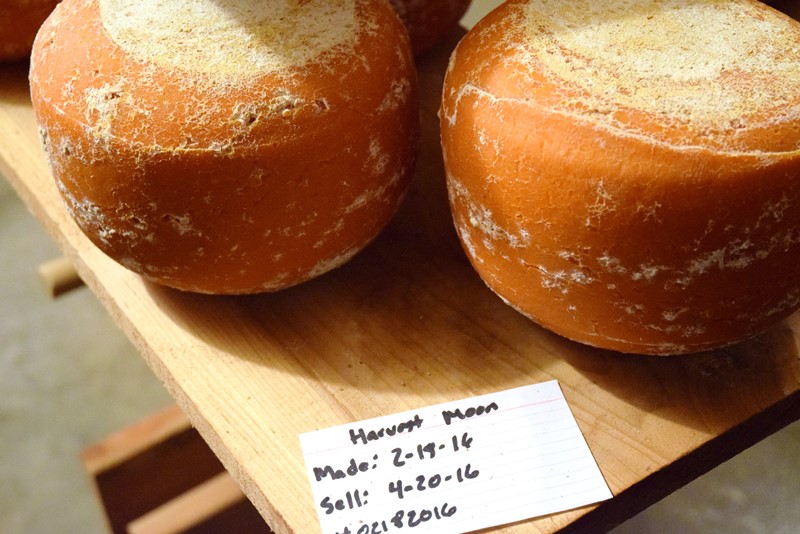 Harvest Moon
Made: 2-18-16
Sell: 4-20-16
#02182016